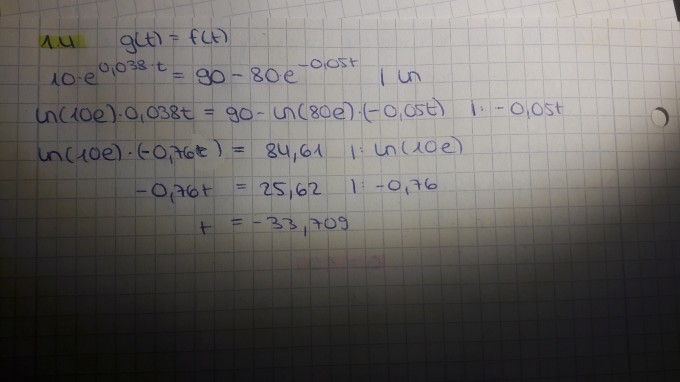 1.4 g(t) = f(t)
10·e^0,038·t = 90 - 80e^-0,05t | ln
ln(10e)·0,038t = 90 - ln(80e)·(-0,05t) |: -0,05t
ln(10e)·(-0,76t) = 84,61 |: ln(10e)
-0,76t = 25,62 |: -0,76
t = -33,709